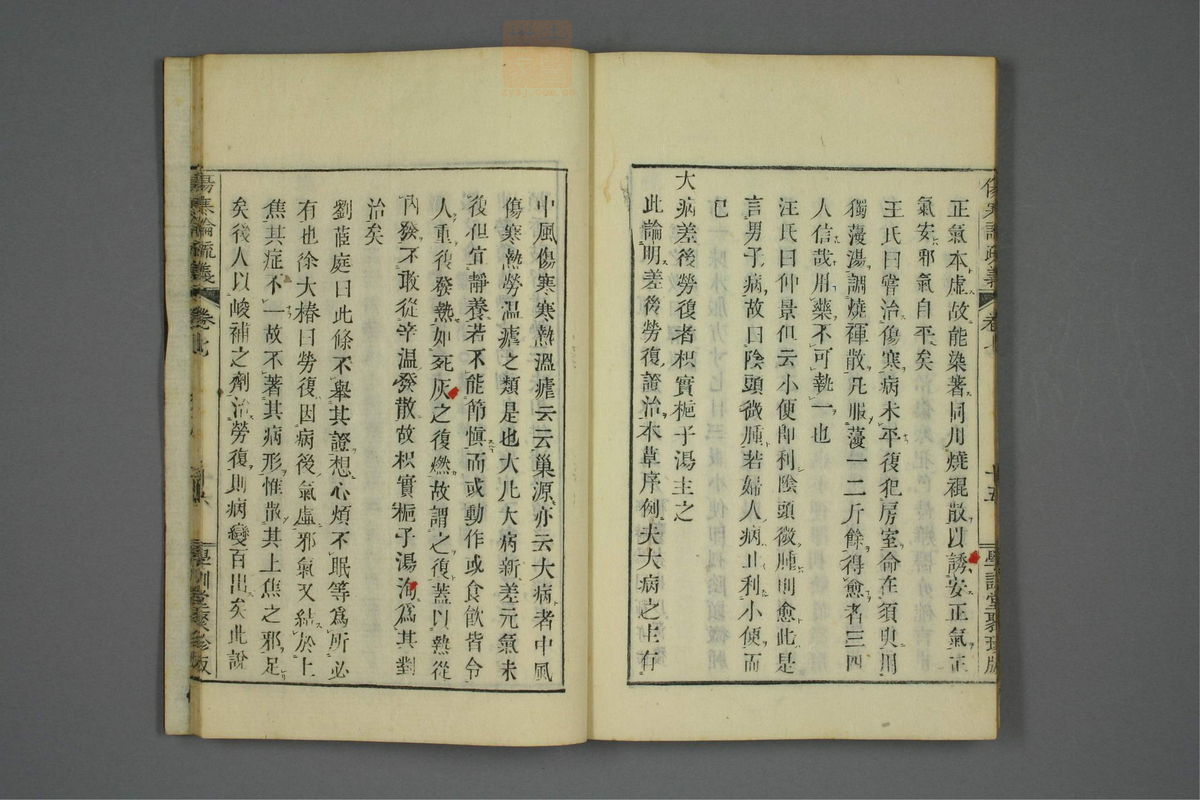 正氣本虛故能染著同用燒裩散以誘安正氣正
氣安邪氣自平矣
王氏曰嘗治傷寒病未平復犯房室命在須臾用
獨薓湯調燒裈散凡服薓一二斤餘得愈者三四
人信哉用藥不可執一也
汪氏曰仲景但云小便即利陰頭微腫則愈此是
言男子病故曰陰頭微腫若婦人病止利小便而
已
大病差後勞復者枳實梔子湯主之
此論明差後勞復證治本草序例夫大病之主有
學訓堂聚珍版
中風傷寒寒熱溫瘧云云巢源亦云大病者中風
傷寒熱勞溫瘧之類是也大凡大病新差元氣未
復但宜靜養若不能節愼而或動作或食飲皆令
人重復發熱如死灰之復燃故謂之復蓋以熱從
內發不敢從辛溫發散故枳實梔子湯洵爲其對
治矣
劉茝庭曰此條不舉其證想心煩不眠等爲所必
有也徐大椿曰勞復因病後氣虛邪氣又結於上
焦其症不一故不著其病形惟散其上焦之邪足
矣後人以峻補之劑治勞復則病變百出矣此說
傷寒論疏義 卷七 學訓堂聚珍版